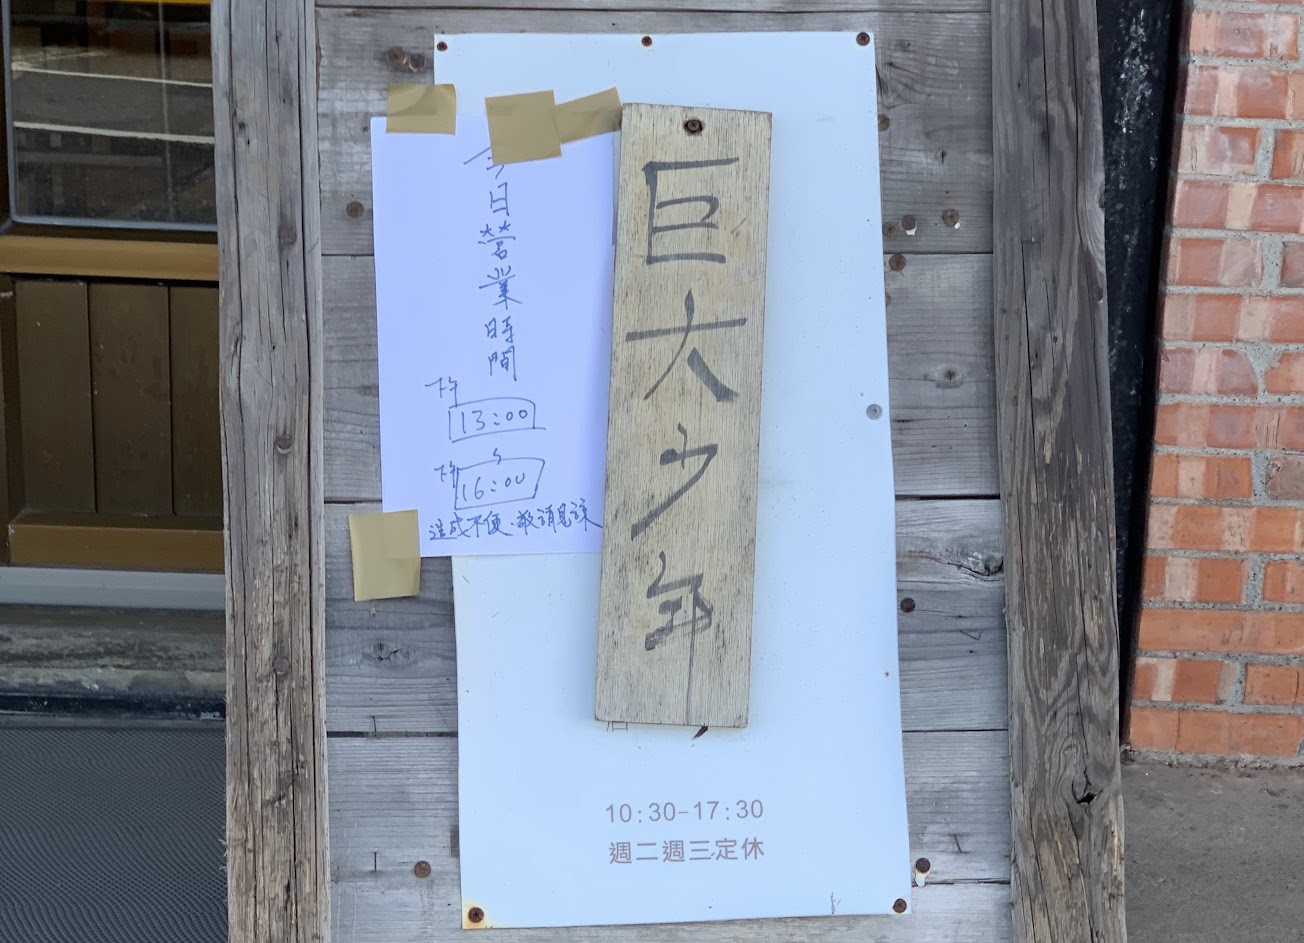 巨大少年
今日營業時間
下午
13:00
下午
16:00
造成不便、敬請見諒
10:30-17:30
週二週三定休